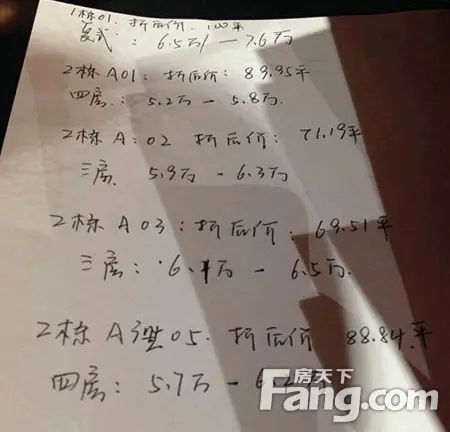 1栋01. 折后价. 100平
复式 : 6.5万 — 7.6万
2栋 A01: 折后价: 89.95平
四房: 5.2万 — 5.8万.
2栋 A: 02 折后价: 71.19平
三房 5.9万 — 6.3万
2栋 A 03: 折后价: 69.51平
三房: 6.1万 — 6.5万.
2栋 A 05. 折后价 88.84平
四房: 5.7万 — 6.2万
房天下
Fang.com